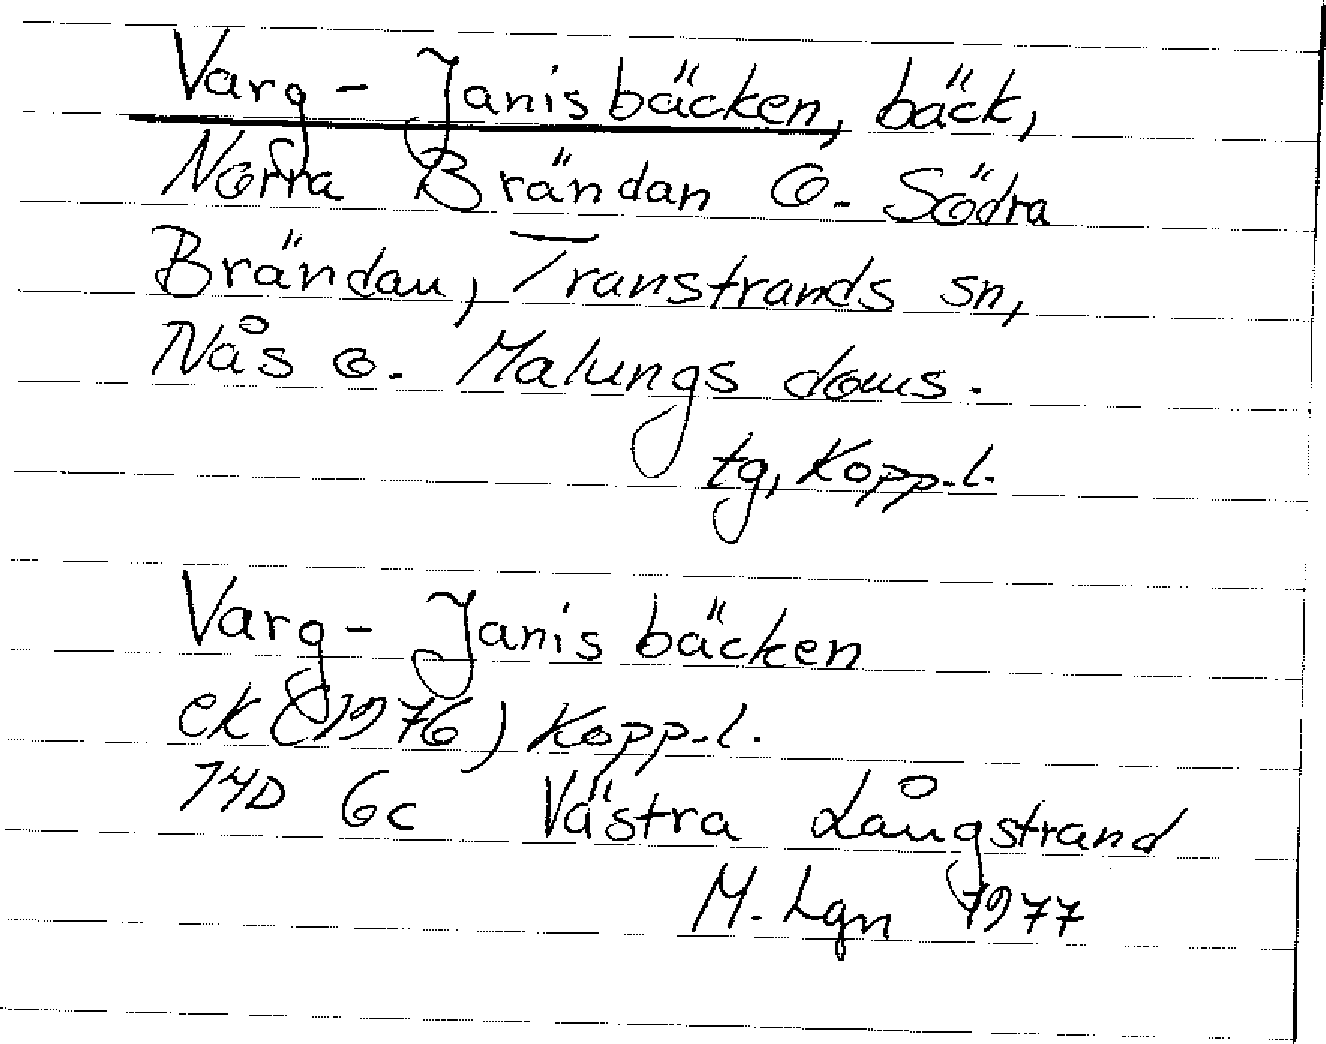 Varg-Janisbäcken, bäck,
Norra Brändan o. Södra
Brändan, Transtrands sn,
Nås o. Malungs doms.
tg, Kopp.l.
Varg-Janisbäcken
ek (1976) Kopp.l.
14D 6c Västra Långstrand
M. Lgn 1977